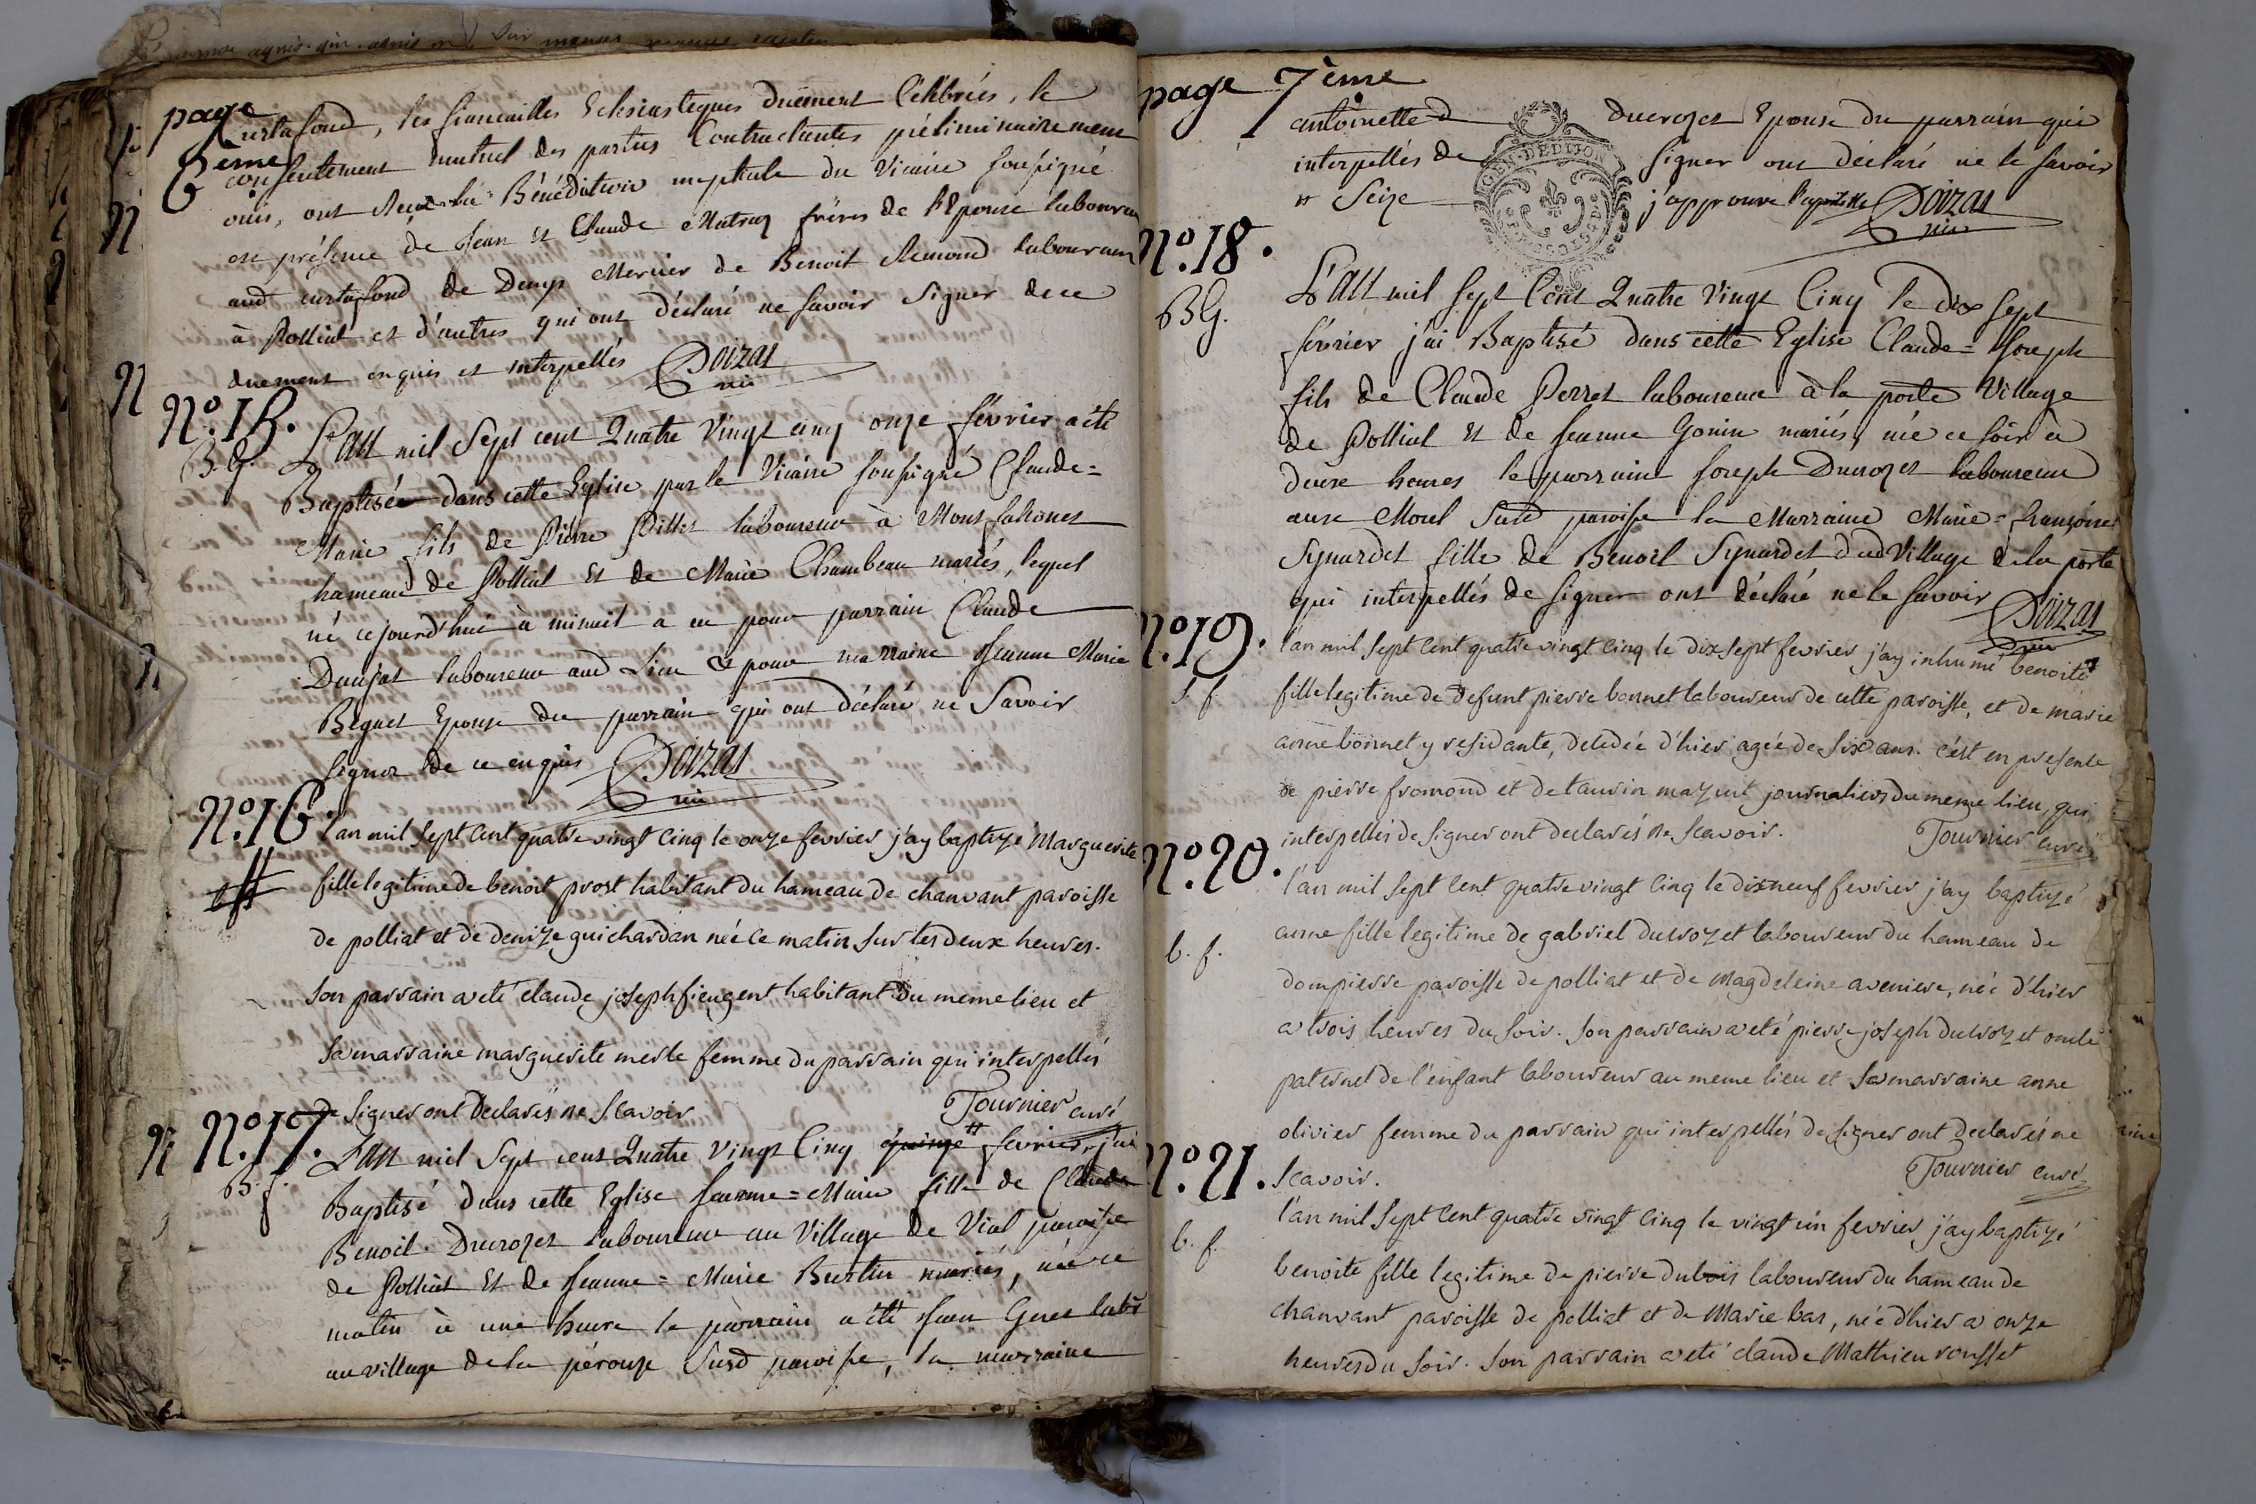 page
6ème
Curtafond, les fiancailles Eclesiastiques duëment Célébrées, le
consentement mutuel des parties Contractantes préliminairement
ouis, ont Reçu la Bénédiction nuptiale du Vicaire soussigné
en présence de Jean et Claude Mutraz frères de l'Epouse laboureurs
aud curtafond de Denys Mercier de Benoit Remond laboureurs
à Polliat et d'autres qui ont déclaré ne savoir signer de ce
duement enquis et interpellés Doizat
vic
N°. 15.
B. G.
L'an mil Sept cent Quatre Vingt cinq onze février a été
Baptisée dans cette Eglise par le Vicaire soussigné Claude=
Marie fils de Pierre Pillet laboureur à Mont falconet
hameau de Polliat et de Marie Chambeau mariés, lequel
né cejourd'hui à minuit a eu pour parrain Claude
Daujat laboureur aud Lieu et pour marraine Jeanne Marie
Beguet Epouse du parrain qui ont déclaré ne Savoir
signer de ce enquis Doizat
vic
N°. 16.
l'an mil sept cent quatre vingt cinq le onze fevrier j'ay baptizé Marguerite
fille legitime de benoit prost habitant du hameau de chanvant paroisse
de polliat et de denize guichardan née ce matin sur les deux heures.
son parrain a eté claude joseph fieugent habitant du meme lieu et
sa marraine marguerite merle femme du parrain qui interpellés
de signer ont declarés ne scavoir Tournier curé
N°. 17.
B. f.
L'an mil Sept cent Quatre Vingt Cinq quinze # fevrier, j'ai
Baptisé dans cette Eglise Jeanne=Marie fille de Claude
Benoit Ducrozet laboureur au Village de Vial paroisse
de Polliat Et de Jeanne=Marie Burtin mariés, née ce
matin à une heure le parrain a été Jean Genet labr
au village de la pérouze susd paroisse, la marraine
page 7ème
antoinette d ducrozet Epouse du parrain qui
interpellés de signer ont déclaré ne le savoir
# Seize j'approuve l'apostille Doizat
vic
GEN. DE DIJON
N°. 18.
B G.
L'an mil sept Cent Quatre Vingt Cinq le dix sept
février j'ai Baptisé dans cette Eglise Claude=Joseph
fils de Claude Perret laboureur à la porte Village
de Polliat Et de Jeanne Gonin mariés, née ce soir à
deux heures le parrain Joseph Ducrozet laboureur
aux Morel susd paroisse la Marraine Marie=françoise
Synardet fille de Benoit Synardet dud Village de la porte
qui interpellés de signer ont déclaré ne le savoir Doizat
vic
N°. 19.
S. f.
l'an mil sept cent quatre vingt cinq le dix sept fevrier j'ay inhumé benoite
fille legitime de defunt pierre bonnet laboureur de cette paroisse, et de marie
anne bonnet y residante, decedée d'hier agée de six ans. c'est en presence
de pierre fromond et de taurin mazuit journaliers du meme lieu, qui
interpellés de signer ont declarés ne scavoir. Tournier curé
N°. 20.
b. f.
l'an mil sept cent quatre vingt cinq le dix neuf fevrier j'ay baptizé
anne fille legitime de gabriel ducrozet laboureur du hameau de
dompierre paroisse de polliat et de magdeleine aveniere, née d'hier
a trois heures du soir. son parrain a eté pierre joseph ducrozet oncle
paternel de l'enfant laboureur au meme lieu et sa marraine anne
olivier femme du parrain qui interpellés de signer ont declarés ne
scavoir. Tournier curé
N°. 21.
b. f.
l'an mil sept cent quatre vingt cinq le vingt un fevrier j'ay baptizé
benoite fille legitime de pierre dubois laboureur du hameau de
chanvant paroisse de polliat et de Marie bas, née d'hier a onze
heures du soir. son parrain a eté claude Mathieu rousset